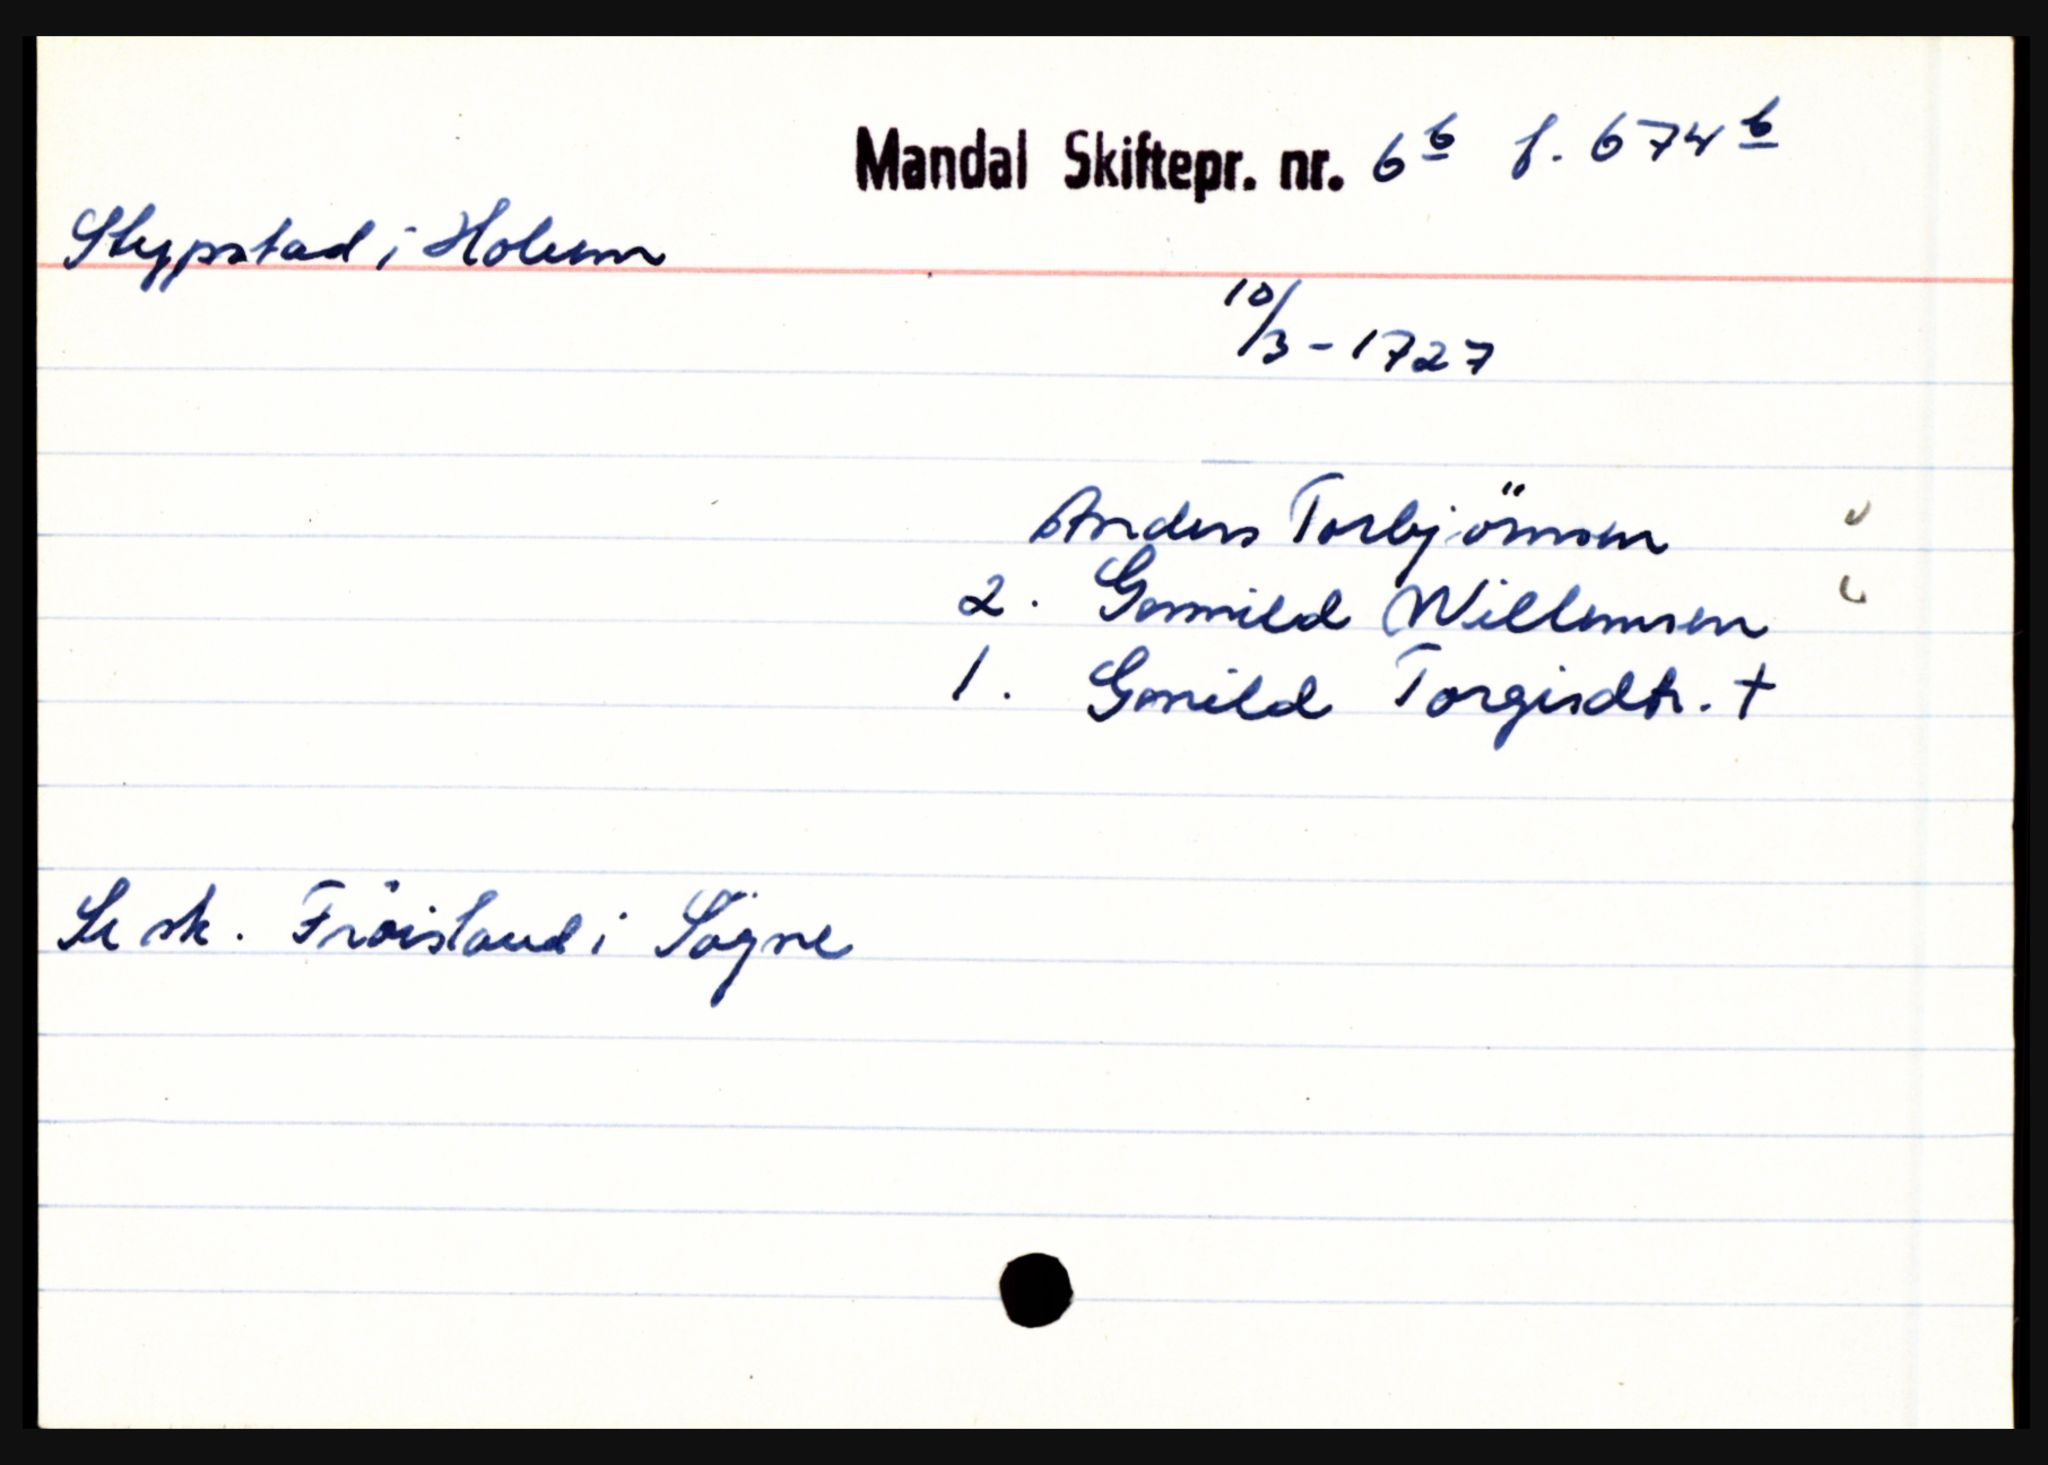 Mandal Skiftepr. nr. 6b f. 674b
Stypstad i Holum
10/3 - 1727
Anders Torbjörnsen
2. Gunnild Willumsen
1. Gunild Torgisdtr. +
Se sk. Fröisland i Sögne